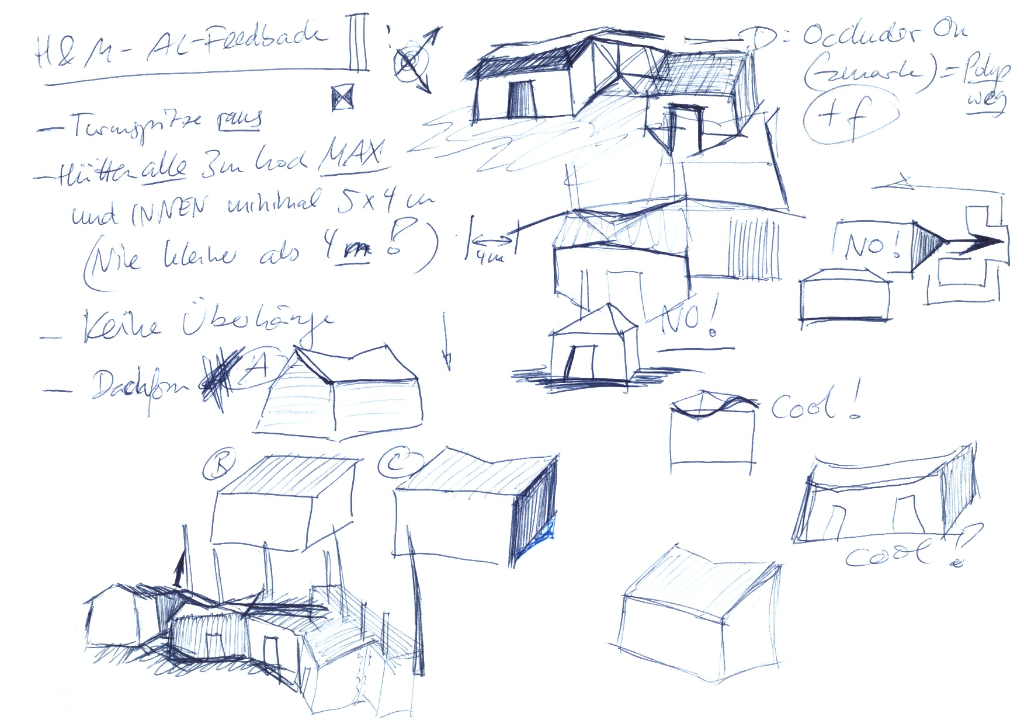 H & M - AL-Feedback
- Turmspitze raus
- Hütten alle 3m hoch MAX
und INNEN minimal 5 x 4 m
(Nie kleiner als 4m!)
4m
- Keine Überhänge
- Dachform A
B
C
D: Occluder On
= Polys
weg
+ f
NO!
NO!
Cool!
Cool!